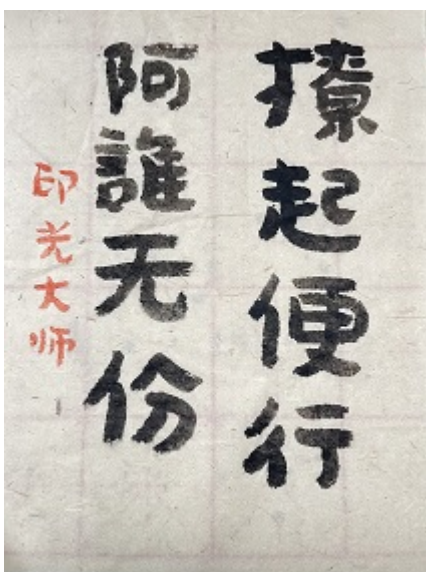 撩起便行
阿誰无份
印光大师